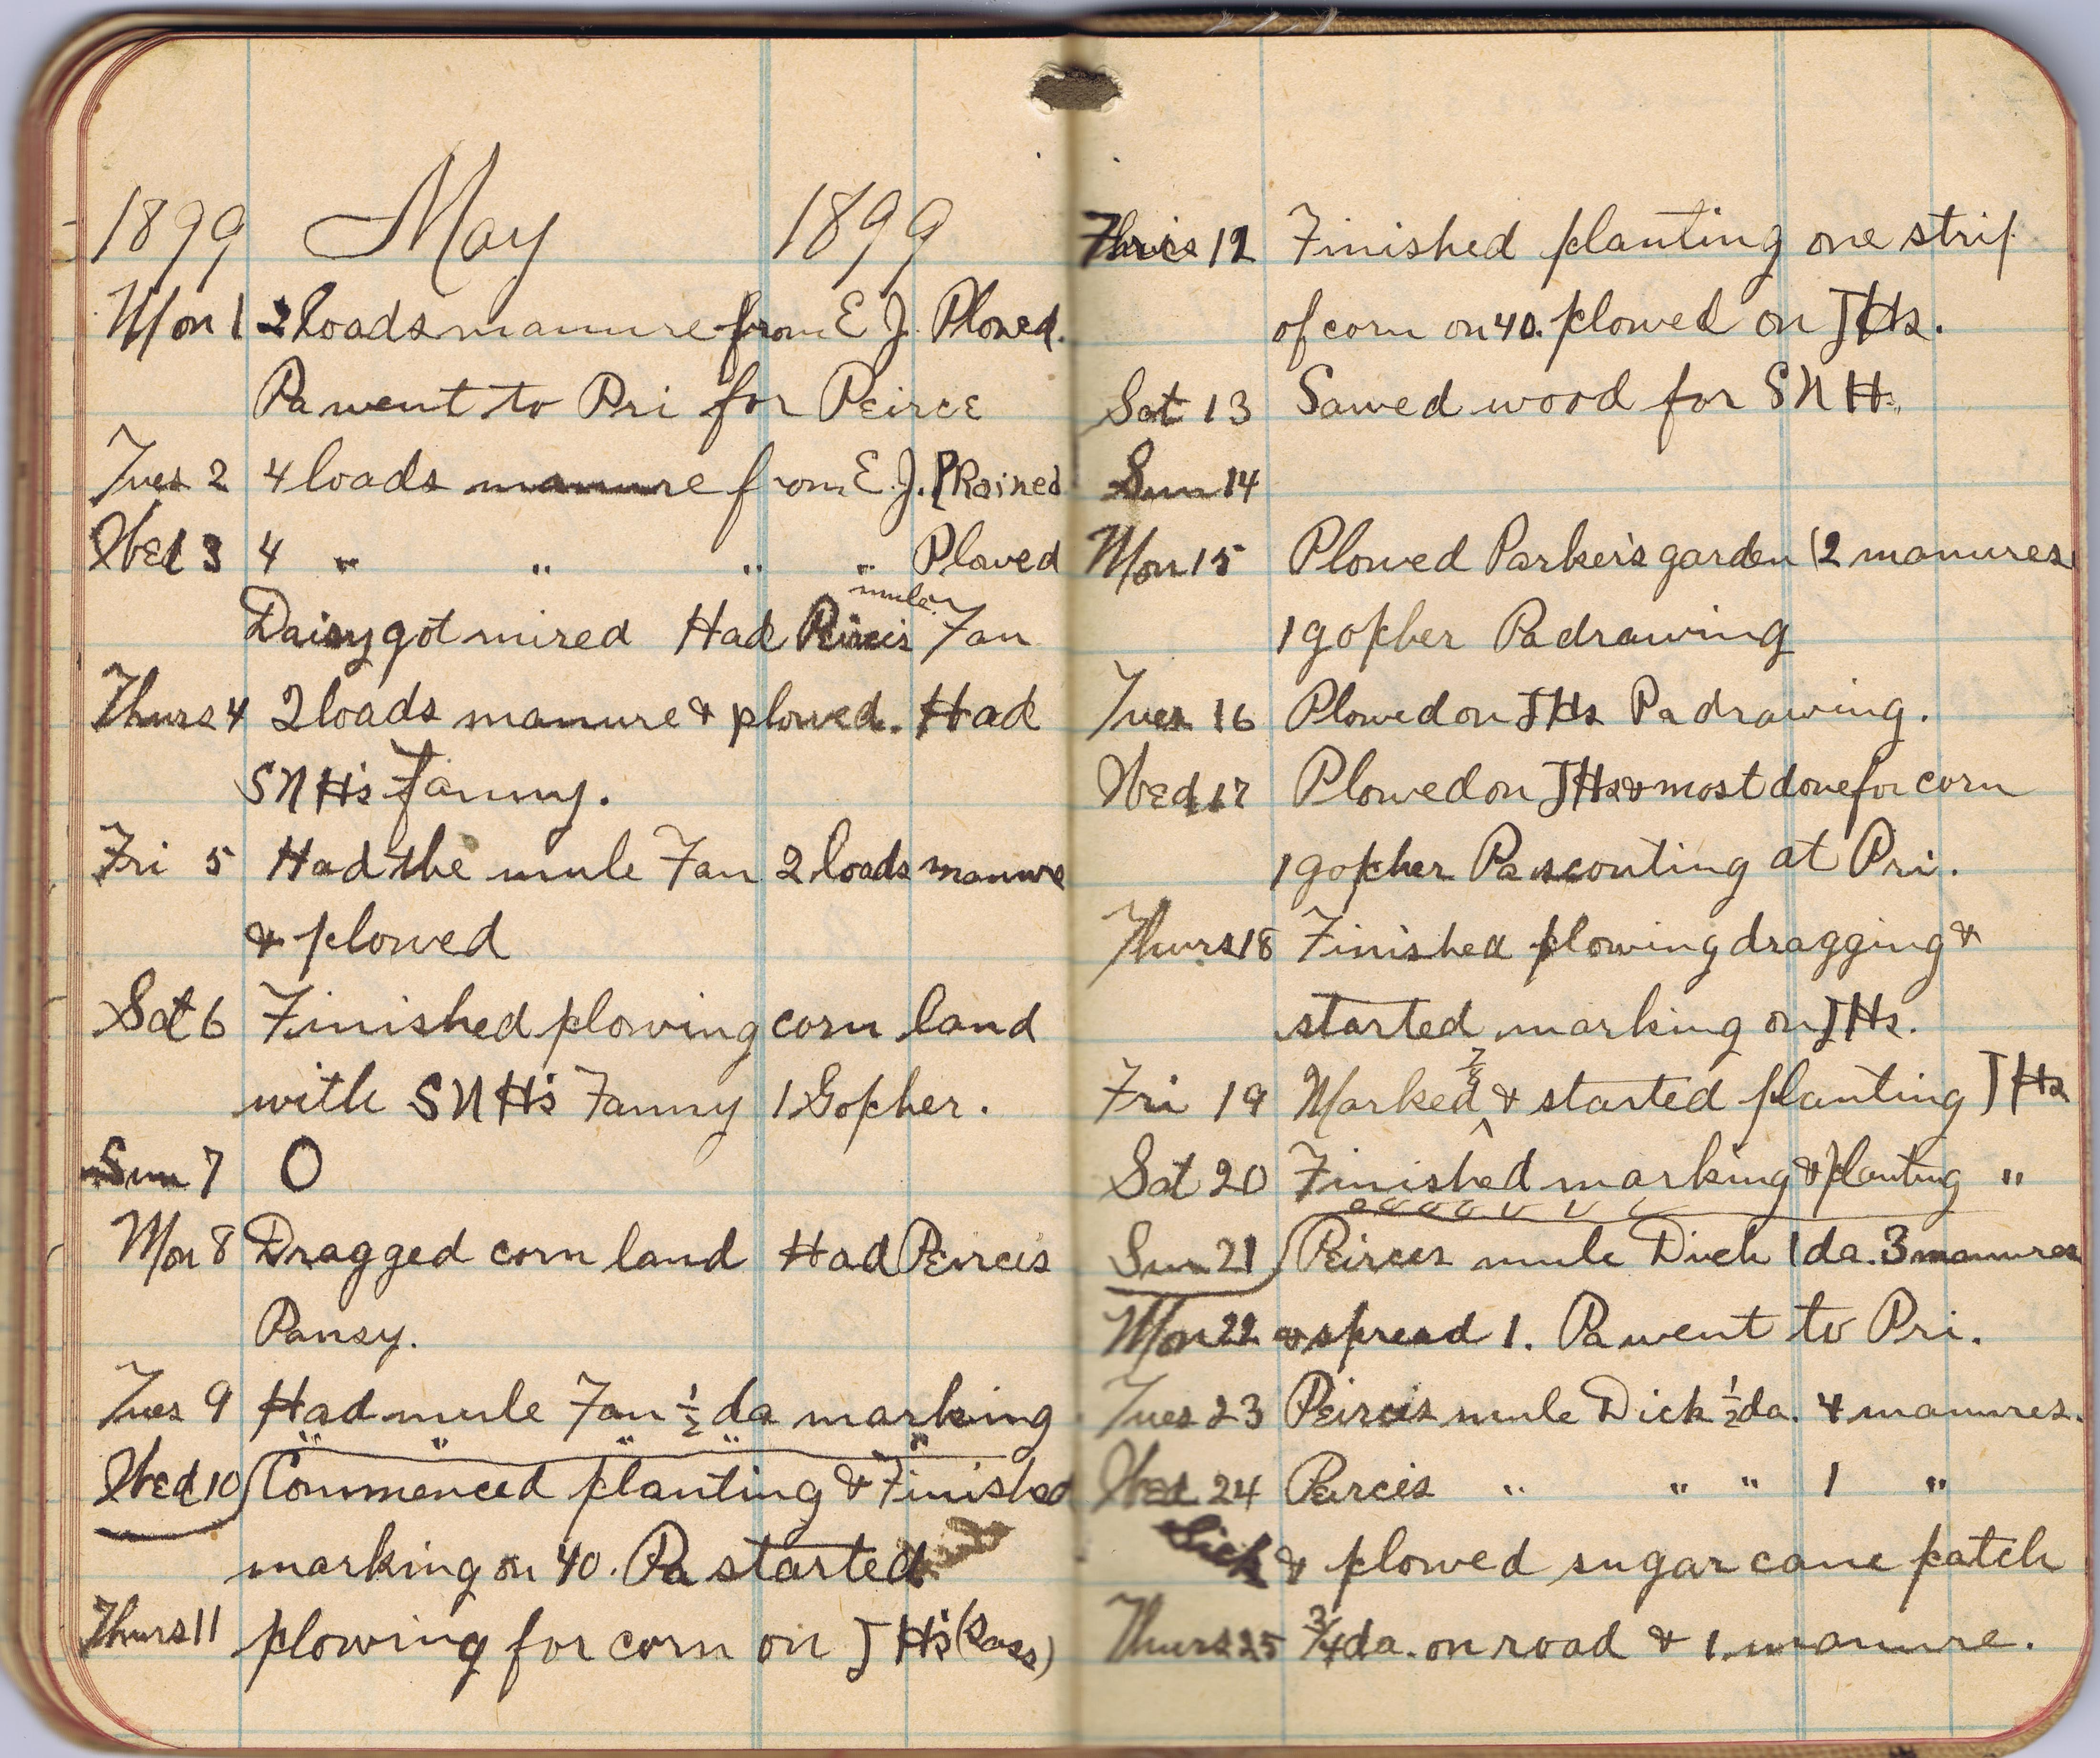 1899 May 1899
Mon 1 2 loads manure from E J. Plowed.
Pa went to Pri for Peirce
Tues 2 4 loads manure from E. J. P Rained
Wed 3 4 " " " " Plowed
mule
Daisy got mired Had Peirces Fan
Thurs 4 2 loads manure & plowed. Had
SNH's Fanny.
Fri 5 Had the mule Fan 2 loads manure
& plowed
Sat 6 Finished plowing corn land
with SNH's Fanny 1 Gopher.
Sun 7 0
Mon 8 Dragged corn land Had Peirces
Pansy.
Tues 9 Had mule Fan 1/2 da marking
" " " " "
Wed 10 Commenced planting & Finished
marking on 40. Pa started
Thurs 11 plowing for corn on JH's
Thurs 12 Finished planting one strip
of corn on 40. plowed on JHs.
Sat 13 Sawed wood for SNH.
Sun 14
Mon 15 Plowed Parker's garden (2 manures
1 gopher Pa drawing
Tues 16 Plowed on JHs Pa drawing.
Wed 17 Plowed on JHs & most done for corn
1 gopher Pa scouting at Pri.
Thurs 18 Finished plowing dragging &
started marking on JHs.
Fri 19 Marked 7/8 & started planting JHs
Sat 20 Finished marking & planting "
Sun 21 Peirces mule Dick 1 da. 3 manures
Mon 22 & spread 1. Pa went to Pri.
Tues 23 Peirces mule Dick 1/2 da. 4 manures.
Wed 24 Peirces " " " 1 "
Sick & plowed sugar cane patch
Thurs 25 3/4 da. on road & 1 manure.